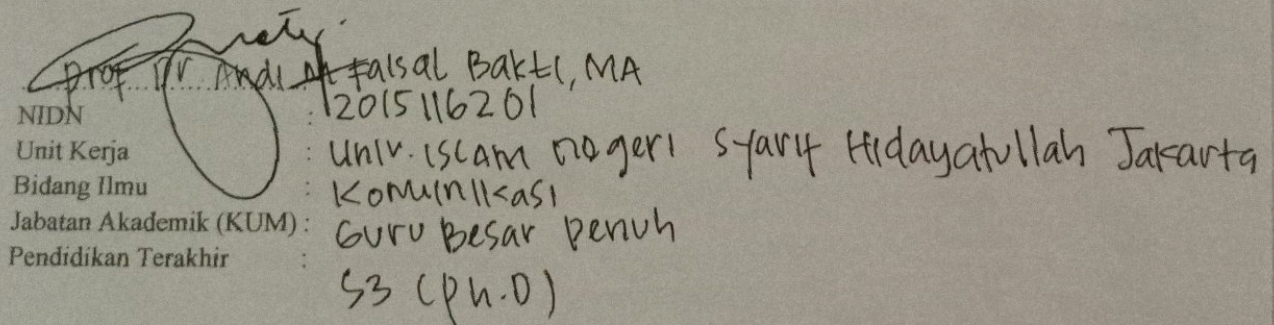 Prof. Dr. Andi M Faisal Bakti, MA
NIDN : 2015116201
Unit Kerja : Univ. Islam negeri Syarif Hidayatullah Jakarta
Bidang Ilmu : Komunikasi
Jabatan Akademik (KUM) : Guru Besar Penuh
Pendidikan Terakhir :
S3 (Ph.D)